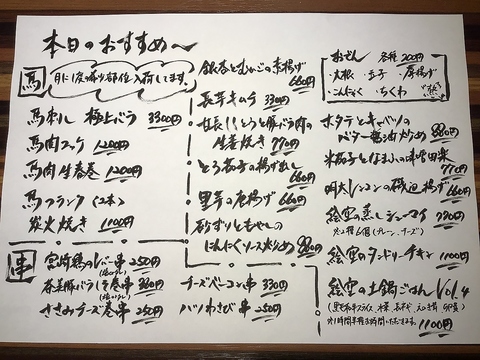 本日のおすすめ〜
馬
馬刺し 極上バラ 3300円
馬肉ユッケ 1200円
馬肉生春巻 1200円
馬フランク (2本)
炭火焼き 1100円
串
宮崎鶏のレバー串 250円
茶美豚バラしそ巻串 360円
ささみチーズ巻串 250円
銀杏とむかごの素揚げ
660円
長芋キムチ 330円
甘長ししとうと豚バラ肉の
生姜焼き 770円
とろ茄子の揚げ出し
660円
里芋の唐揚げ
660円
砂ずりともやしの
にんにくソース炒め 880円
チーズベーコン串 330円
ハツわさび串 250円
おでん 各種 200円
・大根 ・玉子 ・厚揚げ
・こんにゃく ・ちくわ
ホタテとキャベツの
バター醤油炒め 880円
米茄子となまふの味噌田楽
770円
明太レンコンの磯辺揚げ 660円
絵空の蒸しシューマイ 780円
絵空のタンドリーチキン 1100円
絵空の土鍋ごはん Vol.4
1100円